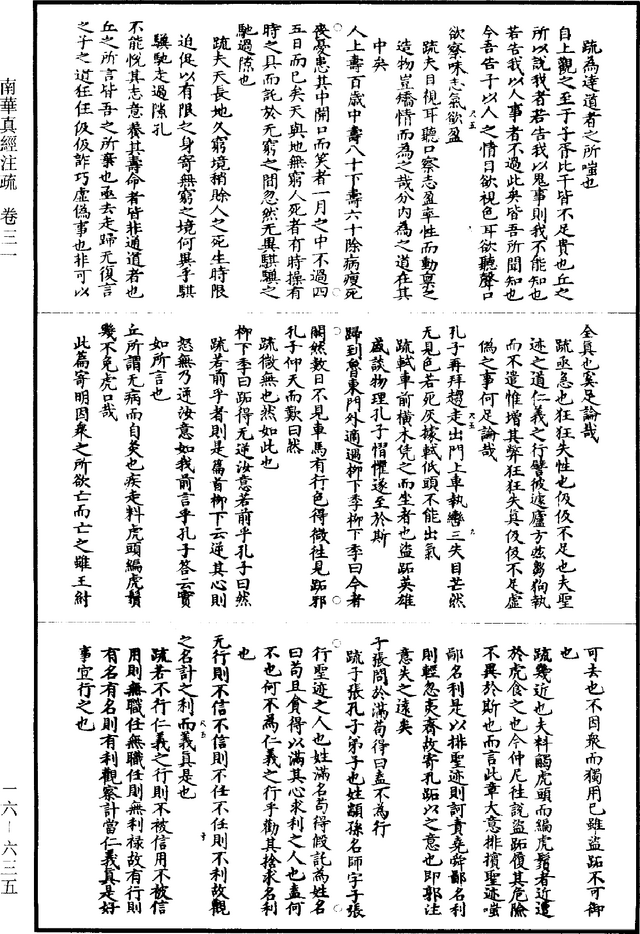 疏為達道者之所嗤也
自上觀之至于子胥比干皆不足貴也丘之
所以說我者若告我以鬼事則我不能知也
若告我以人事者不過此矣皆吾所聞知也
今吾告子以人之情目欲視色耳欲聽聲口
欲察味志氣欲盈
疏夫目視耳聽口察志盈率性而動稟之
造物豈矯情而為之哉分內為之道在其
中矣
人上壽百歲中壽八十下壽六十除病瘦死
喪憂患其中開口而笑者一月之中不過四
五日而已矣天與地無窮人死者有時操有
時之具而託於无窮之間忽然无異騏驥之
馳過隙也
疏夫天長地久窮境稍賒人之死生時限
迫促以有限之身寄無窮之境何異乎騏
驥馳走過隙孔
不能悅其志意養其壽命者皆非通道者也
丘之所言皆吾之所棄也亟去走歸无復言
之子之道狂狂伋伋詐巧虛偽事也非可以
南華真經注疏　卷三一
全真也奚足論哉
疏亟急也狂狂失性也伋伋不足也夫聖
迹之道仁義之行譬彼遽廬方茲芻狗執
而不遣惟增其弊狂狂失真伋伋不足虛
偽之事何足論哉
孔子再拜趨走出門上車執轡三失目芒然
无見色若死灰據軾低頭不能出氣
疏軾車前橫木凭之而坐者也盜跖英雄
盛談物理孔子慴懼遂至於斯
歸到魯東門外適遇柳下季柳下季曰今者
闕然數日不見車馬有行色得微往見跖邪
孔子仰天而歎曰然
疏微無也然如此也
柳下季曰跖得无逆汝意若前乎孔子曰然
疏若前乎者則是篇首柳下云逆其心則
怒無乃逆汝意如我前言乎孔子答云實
如所言也
丘所謂无病而自灸也疾走料虎頭編虎鬚
幾不免虎口哉
此篇寄明因衆之所欲亡而亡之雖王紂
可去也不因衆而獨用己雖盜跖不可御
也
疏幾近也夫料觸虎頭而編虎鬚者近遭
於虎食之也今仲尼往說盜跖履其危險
不異於斯也而言此章大意排擯聖迹嗤
鄙名利是以排聖迹則訶責堯舜鄙名利
則輕忽夷齊故寄孔跖以之意也即郭注
意失之遠矣
子張問於滿苟得曰盍不為行
疏子張孔子弟子也姓顓孫名師字子張
行聖迹之人也姓滿名苟得假託為姓名
曰苟且貪得以滿其心求利之人也盍何
不也何不為仁義之行乎勸其捨求名利
也
无行則不信不信則不任不任則不利故觀
之名計之利而義真是也
疏若不行仁義之行則不被信用不被信
用則無職任無職任則無利祿故有行則
有名有名則有利觀察計當仁義真是好
事宜行之也
一六—六三五